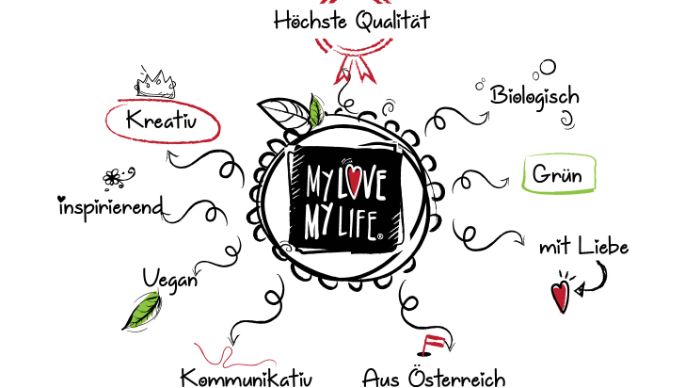 Höchste Qualität
Biologisch
Kreativ
Grün
MY LOVE
MY LIFE®
inspirierend
mit Liebe
Vegan
Kommunikativ
Aus Österreich